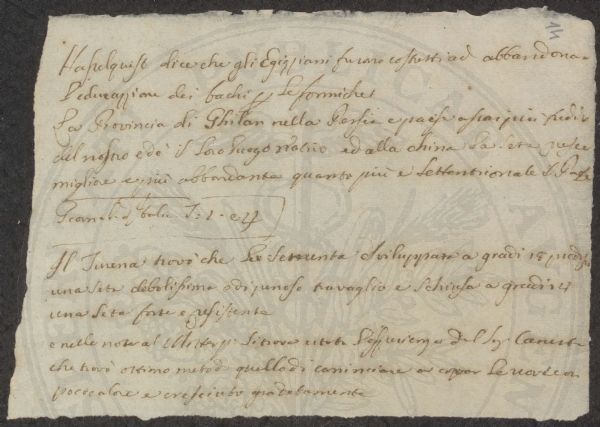 14
Haselquist dice che gli Egizziani furono costretti ad abbandonar
l'educazzione dei bachi p le formiche
La Provincia di Ghilan nella Persia e paese assai più fredo
del nostro ed è il loro luogo nativo ed alla China la seta
migliore e più abbondante quanto più e settentrionale il Paese
T. 1. e 4
Il Turena trovò che la sementa sviluppata a gradi 15
una seta debolissima odi penoso travaglio e schiusa a gradi 21
una seta forte e resistente
e nelle note al si trova citata l'esperienza del Sig
che trovò ottimo metodo quello di cominciare a covar le uova con
poco calore e cresciuto gradatamente